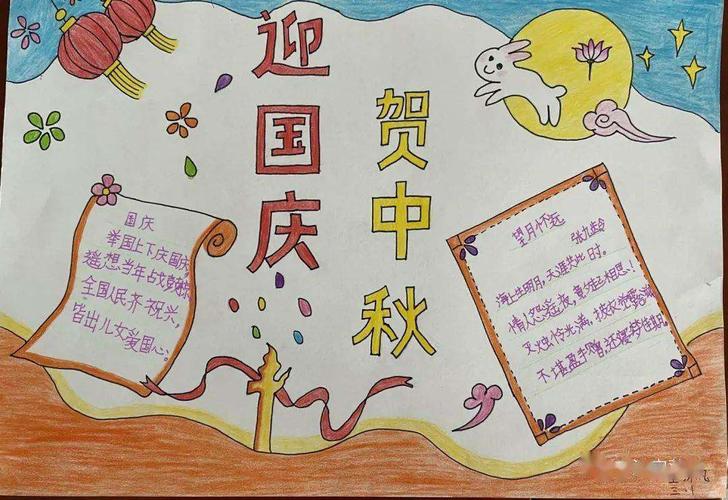 迎国庆
贺中秋
国庆
举国上下庆国庆
遥想当年战
全国人民齐祝兴,
皆出儿女爱国心。
望月怀远
张九龄
海上生明月,天涯共此时。
情人怨遥夜,竟夕起相思!
灭烛怜光满,披衣觉露滋
不堪盈手赠,还寝梦佳期。